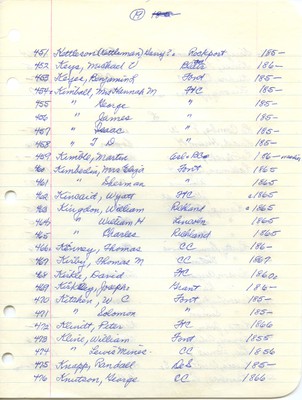 451 Kettleson (Kettleman) Harry Rockport 185-
452 Keys, Michael V 186-
453 Keyes, Benjamin Font 185-
454 Kimball, Mrs Hannah M FC 185-
455 " George " 185-
456 " James " 185-
457 " Isaac " 185-
458 " T D " 185-
459 Kimble, Martin 186-
460 Font 186-
461 " Sherman " 1865
462 Kincaid, Wyatt FC 1865
463 Kingdon, William Richland 1865
464 " William H Lincoln 1865
465 " Charles Richland 1865
466 Kinney, Thomas CC 186-
467 Kirby, Thomas M CC 1867
468 Kirke, David FC 1860s
469 Joseph Grant 186-
470 Kitchen, W C Font 185-
471 " Solomon " 185-
472 Klewitt, Peter FC 1866
473 Kline, William Font 185-
474 " Lewis CC 1856
475 Knapp, Randall 185-
476 Knutson, George CC 1866